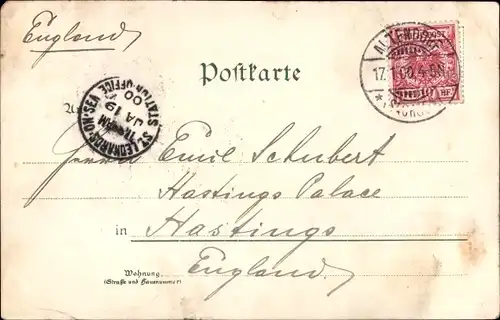 England
Postkarte
ST. LEONARDS-ON-SEA
STATION OFFICE
JA 19
00
17.1.00.4-5N
Herrn Emil Schubert
Hastings Palace
in Hastings
England
Wohnung
(Straße und Hausnummer)